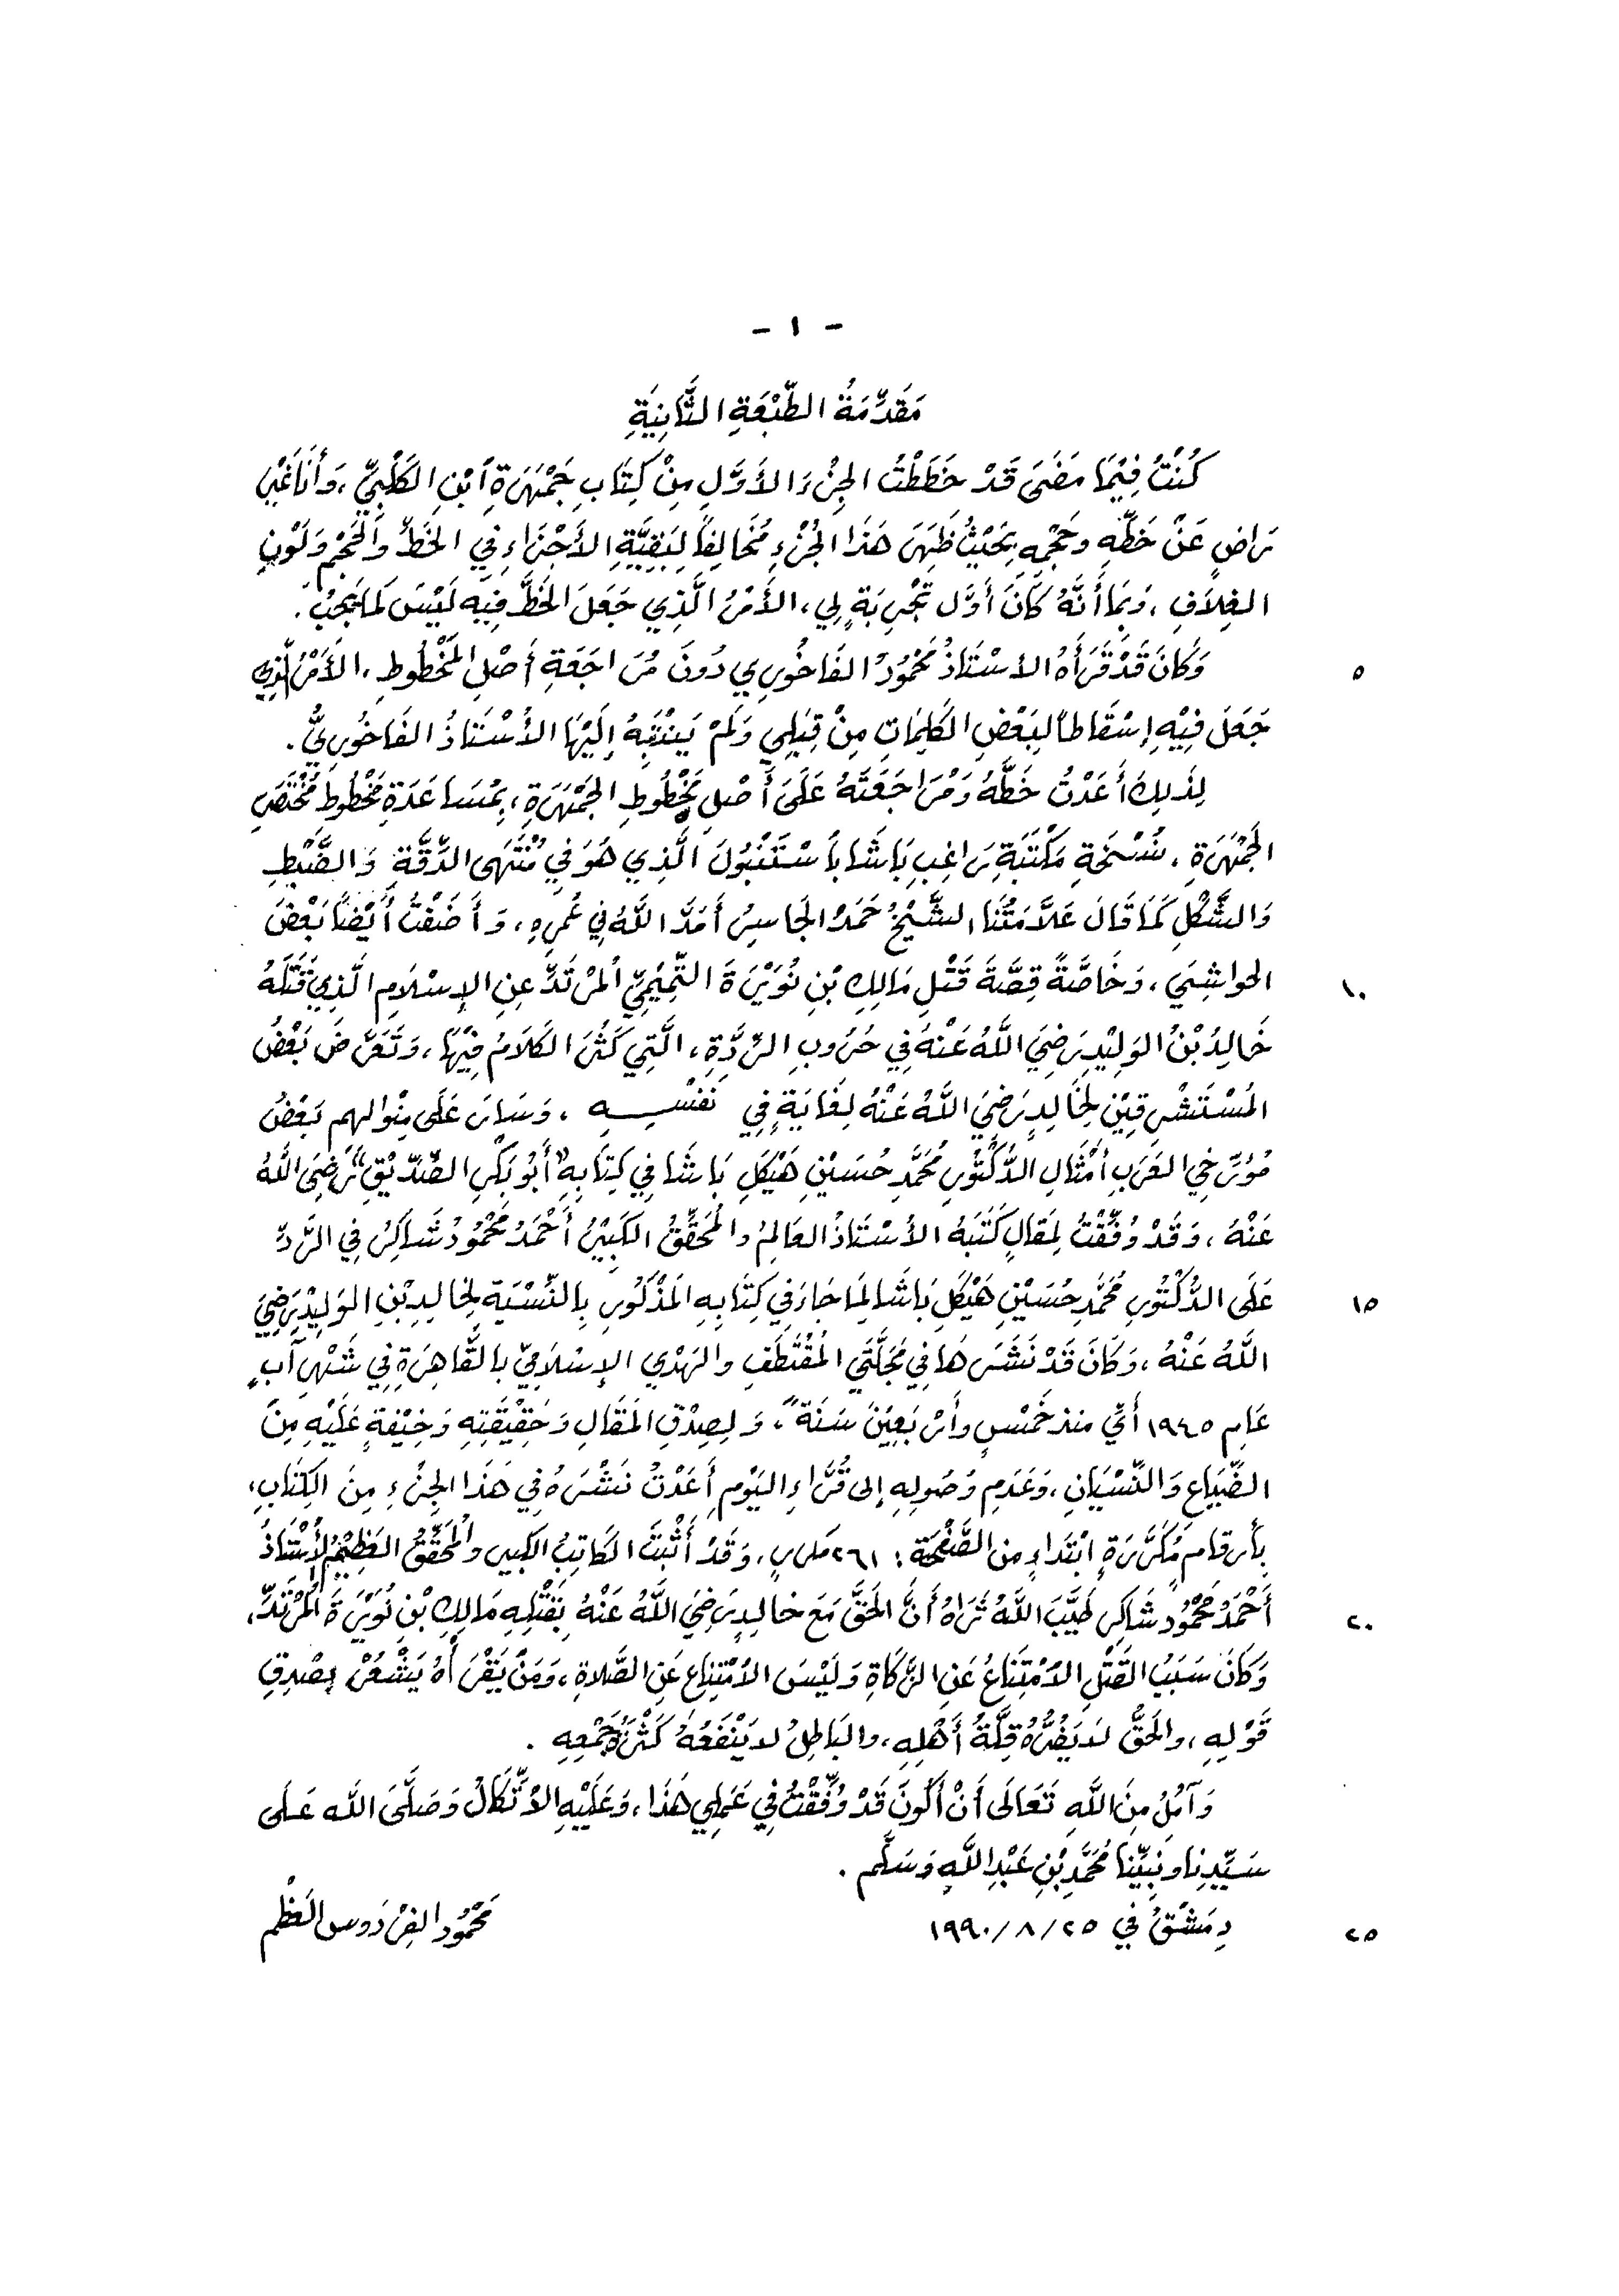 - ١ -
مَقَدِّمَةُ الطَّبْعَةِ الثَّانِيَةِ
كُنْتُ فِيْمَا مَضَىَ قَدْ خَطَطْتُ الجِزْءَ الأَوَّلِ مِنْ كِتَابِ جَمْهَرَةِ ٱبْنِ الكَلْبِيِّ، وَأَنَا غَيْرَ
رَاضٍ عَنْ خَطِّهِ وحَجْمِهِ بِحَيْثُ ظَهَرَ هَذَا الجُزْءِ مُخَالِفاً لِبَقِيَّةِ الأَجْزَاءِ فِي الخَطِّ والحَجْمِ وَلَوْنِ
الغِلَافِ، وَبِمَا أَنَّهُ كَانَ أَوَّل تَجْرِبَةٍ لِي، الأَمْرُ الَّذِي جَعَلَ الخَطَّ فِيْهِ لَيْسَ كَمَا يَجِبُ.
٥ وَكَانَ قَدْ قَرَأَهُ الأُسْتَاذُ مَحْمُوُدُ الفَاخُورِي دُونَ مُرَاجَعَةِ أَصْلِ المَخْطُوطِ، الأَمْرُ الَّذِي
جَعَلَ فِيْهِ إِسْقَاطاً لِبَعْضِ الكَلِمَاتِ مِنْ قِبَلِي وَلَمْ يَنْتَبِهْ إِلَيْهَا الأُسْتَاذُ الفَاخُورِيُّ.
لِذَلِكَ أَعَدْتُ خَطَّهُ وَمُرَاجَعَتَهُ عَلَىَ أَصْلِ مَخْطُوطِ الجَمْهَرَةِ، بِمُسَاعَدَةِ مَخْطُوطِ مُخْتَصَرِ
الجَمْهَرَةِ، نُسْخَةِ مَكْتَبَةِ رَاغِبِ بَاشَا بِاَسْتَنْبُولَ الَّذِي هُوَ فِي مُنْتَهَى الدِّقَّةِ وَالضَّبْطِ
وَالشَّكْلِ كَمَا قَالَ عَلاَّمَتُنَا الشَّيْخُ حَمَدُ الجَاسِرُ أَمَدَّ اللَّهُ فِي عُمرِهِ، وَأَضَفْتُ أَيْضاً بَعْضَ
١٠ الحواشِي، وَخَاصَّةً قِصَّةَ قَتْلِ مَالِكِ بْنِ نُوَيْرَةَ التَّمِيْمِيِّ المُرْتَدِّ عَنِ الإِسْلَامِ الَّذِي قَتَلَهُ
خَالِدُ بْنُ الوَلِيْدِ رَضِيَ اللَّهُ عَنْهُ فِي حُرُوبِ الرِّدَّةِ، الَّتِي كَثُرَ الكَلَامُ فِيْهَا، وَتَعَرَّضَ بَعْضُ
المُسْتَشْرِقِيْنَ لِخَالِدٍ رَضِيَ اللَّهُ عَنْهُ لِغَايَةٍ فِي نَفْسِهِ، وَسَارَ عَلَى مِنْوالهم بَعْضُ
مُؤَرِّخِي العَرَبِ أَمْثَالِ الدُّكْتُوُرِ مُحَمَّدِ حُسَيْنِ هَيْكَلِ بَاشَا فِي كِتَابِهِ "أَبُو بَكْرِ الصِّدِّيْقِ" رَضِيَ اللَّهُ
عَنْهُ، وَقَدْ وُفِّقْتُ لِمَقَالٍ كَتَبَهُ الأُسْتَاذُ العَالِمُ والمُحَقِّقُ الكَبِيْرُ أَحْمَدُ مَحْمُودُ شَاكِرُ فِي الرَّدِّ
١٥ عَلَى الدُّكْتُورِ مُحَمَّدِ حُسَيْنِ هَيْكَلِ بَاشَا لِمَا جَاءَ فِي كِتَابِهِ المَذْكُورِ بِالنِّسْبَةِ لِخَالِدِ بْنِ الوَلِيْدِ رَضِيَ
اللَّهُ عَنْهُ، وَكَانَ قَدْ نَشَرَهَا فِي مَجَلَّتَيِ المُقْتَطَفِ والهَدْي الإِسْلاَمِيِّ بِالقَاهِرَةِ فِي شَهْرِ آبٍ
عَامِ ١٩٤٥ أَيِّ منذ خَمْسٍ وأَرْبَعِيْنَ سَنَةً، وَلِصِدْقِ المَقَالِ وَحَقِيْقَتِهِ وَخِيْفَةٍ عَلَيْهِ مِنَ
الضَّيَاعِ وَالنِّسْيَانِ، وَعَدَمِ وُصُولِهِ إِلى قُرَّاءِ اليَوْمِ أَعَدْتُ نَشْرَهُ فِي هَذَا الجِزْءِ مِنَ الكِتَابِ،
بِأَرقامٍ مُكَرَّرَةٍ اِبْتَدَاءٍ مِن الصَّفْحَة: ٢٦١ مكرر، وَقَدْ أَثْبَتَ الكَاتِبُ الكَبِير والمُحَقِّقُ العَظِيْمُ الأُسْتَاذُ
٢٠ أَحْمَدُ مَحْمُوُد شَاكِر طَيَّبَ اللَّهُ ثَرَاهُ أَنَّ الحَقَّ مَعَ خالِدٍ رَضِيَ اللَّهُ عَنْهُ بِقَتْلِهِ مَالِكِ بْنِ نُوَيْرَةَ المُرْتَدِّ،
وَكَانَ سَبَبُ القَتْلِ الاَمْتِنَاعُ عَنِ الزَّكَاةِ وَلَيْسَ الاَمْتِنَاعِ عَنِ الصَّلاةِ، وَمَنْ يَقْرَأْهُ يَشْعُرْ بِصْدِقِ
قَوْلِهِ، والحَقُّ لاَ يَضُرُّهُ قِلَّةُ أَهْلِهِ، والبَاطِلُ لاَ يَنْفَعُهُ كَثْرَةُ جَمْعِهِ.
وَآمُلُ مِنَ اللَّهِ تَعَالَى أَنْ أَكُونَ قَدْ وُفِّقْتُ فِي عَمَلِي هَذَا، وَعَلَيْهِ الاَتِّكَالُ وَصَلَّىَ اللَّه عَلَى
سَيِّدِنا ونَبِيِّنَا مُحَمَّدِ بْنِ عَبْدِ اللَّهِ وَسَلَّم.
٢٥ دِمَشْقُ فِي ٢٥/٨/١٩٩٠ مَحْمُوُد الفِرْدَوس العَظْم